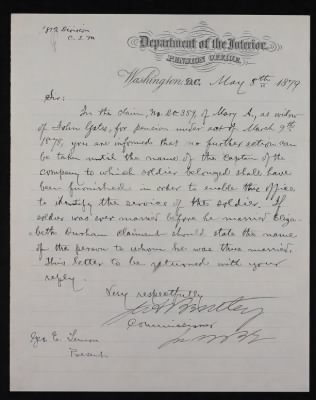 Department of the Interior,
PENSION OFFICE,
Washington, D.C. May 8th 1879
Sir:
In the claim, No. 20.359, of Mary A., as widow
of John Gates, for pension under act of March 9th
1878, you are informed that no further action can
be taken until the name of the Captain of the
company to which soldier belonged shall have
been furnished in order to enable this office
to identify the service of the soldier. If
soldier was ever married before he married Eliza-
beth Durham claimant should state the name
of the person to whom he was thus married.
This letter to be returned with your
reply.
Very respectfully
Commissioner
Geo. E. Lemon
Present